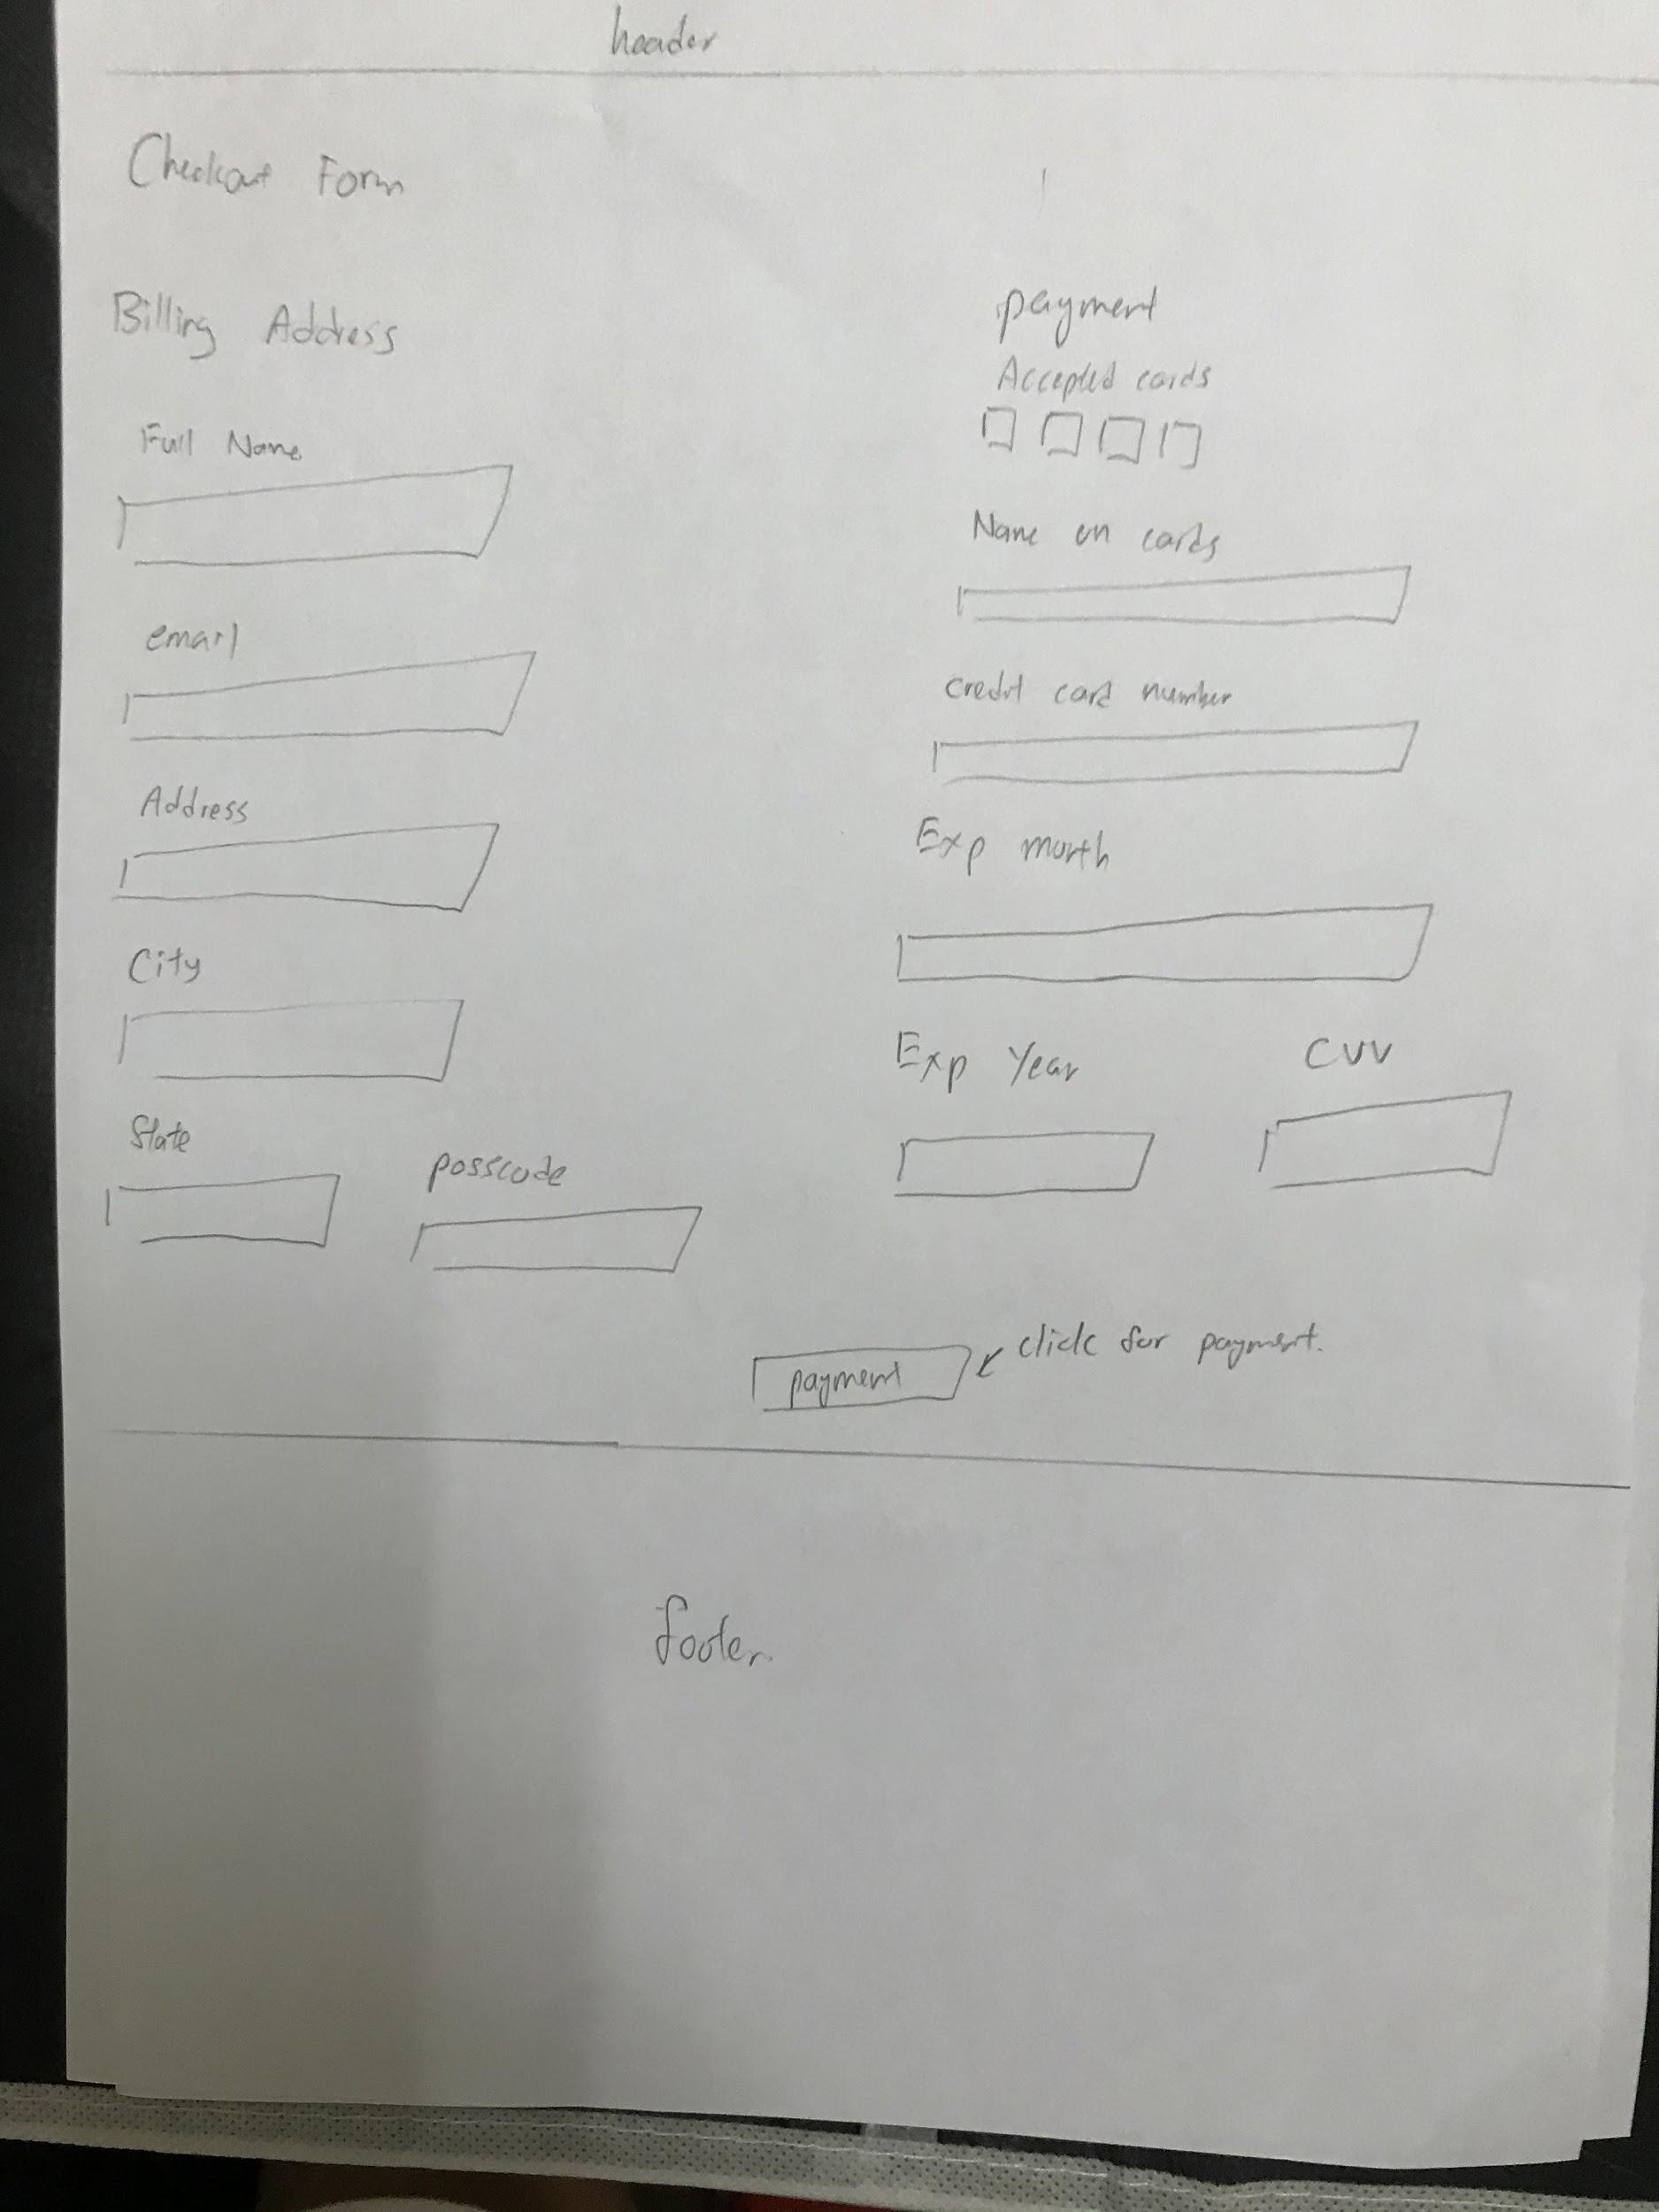 header
Checkout Form
Billing Address
Full Name
email
Address
City
State
posscode
payment
Accepted cards
Name on cards
credit card number
Exp month
Exp Year
CVV
payment
click for payment.
footer